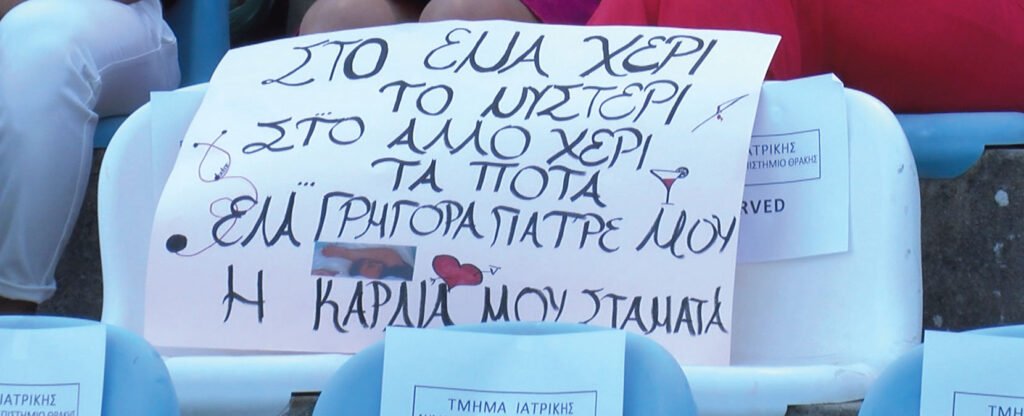 ΣΤΟ ΕΝΑ ΧΕΡΙ
ΤΟ ΝΥΣΤΕΡΙ
ΣΤΟ ΑΛΛΟ ΧΕΡΙ
ΤΑ ΠΟΤΑ
ΕΛΑ ΓΡΗΓΟΡΑ ΓΙΑΤΡΕ ΜΟΥ
Η ΚΑΡΔΙΑ ΜΟΥ ΣΤΑΜΑΤΑ
ΙΑΤΡΙΚΗΣ
ΘΡΑΚΗΣ
ΙΑΤΡΙΚΗΣ
ΘΡΑΚΗΣ
ΤΜΗΜΑ ΙΑΤΡΙΚΗΣ
ΤΜΗΜΑ